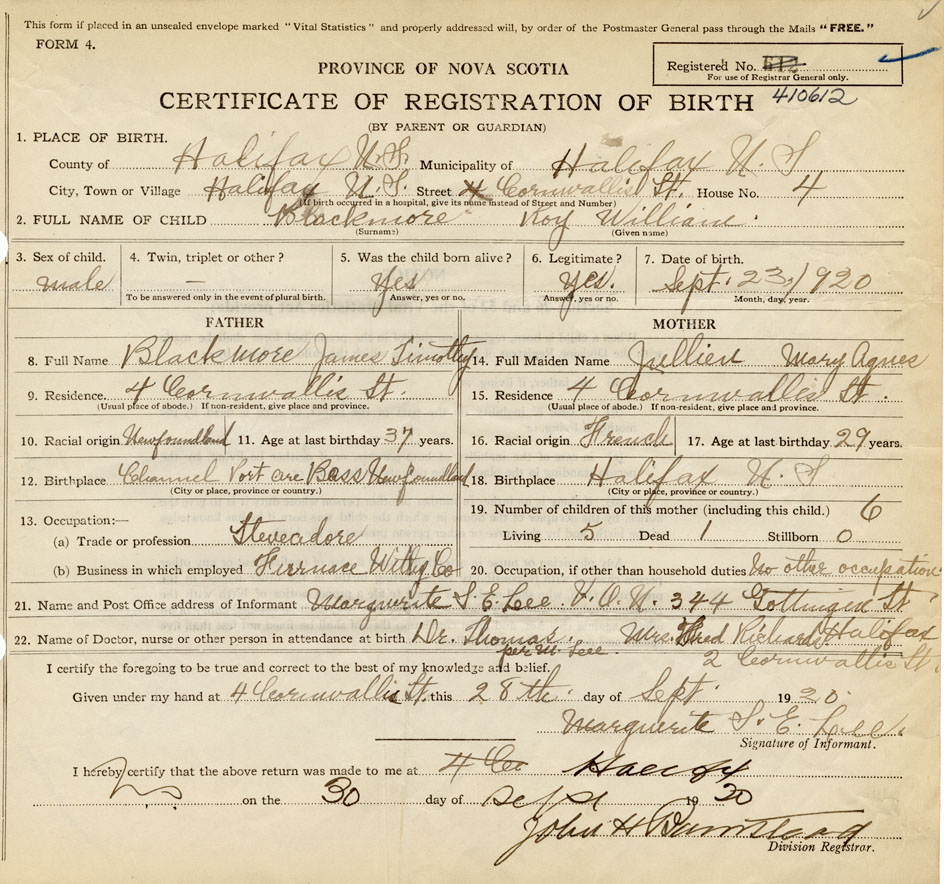 This form if placed in an unsealed envelope marked "Vital Statistics" and properly addressed will, by order of the Postmaster General pass through the Mails "FREE."
FORM 4.
Registered No. 612
For use of Registrar General only.
410612
PROVINCE OF NOVA SCOTIA
CERTIFICATE OF REGISTRATION OF BIRTH
(BY PARENT OR GUARDIAN)
1. PLACE OF BIRTH.
County of Halifax N.S. Municipality of Halifax N. S
City, Town or Village Halifax N.S. Street Cornwallis St. House No. 4
(If birth occurred in a hospital, give its name instead of Street and Number)
2. FULL NAME OF CHILD Blackmore Roy William.
(Surname) (Given name)
3. Sex of child. 4. Twin, triplet or other? 5. Was the child born alive? 6. Legitimate? 7. Date of birth.
male — Yes Yes. Sept. 23, 1920
To be answered only in the event of plural birth. Answer, yes or no. Answer, yes or no. Month, day, year.
FATHER MOTHER
8. Full Name Blackmore James Timothy 14. Full Maiden Name Jullien Mary Agnes
9. Residence. 4 Cornwallis St. 15. Residence 4 Cornwallis St.
(Usual place of abode.) If non-resident, give place and province. (Usual place of abode.) If non-resident, give place and province.
10. Racial origin Newfoundland 11. Age at last birthday 37 years. 16. Racial origin French 17. Age at last birthday 29 years.
12. Birthplace Channel Port are Bass Newfoundland 18. Birthplace Halifax N. S
(City or place, province or country.) (City or place, province or country.)
13. Occupation:— 19. Number of children of this mother (including this child.) 6
(a) Trade or profession Steveadore Living 5 Dead 1 Stillborn 0
(b) Business in which employed Furnace Withy Co 20. Occupation, if other than household duties No other occupation
21. Name and Post Office address of Informant Marguerite S. E. Lee V. O. N. 344 Gottingen St
22. Name of Doctor, nurse or other person in attendance at birth Dr. Thomas. Mrs. Fred Richards Halifax
per M. Lee. 2 Cornwallis St.
I certify the foregoing to be true and correct to the best of my knowledge and belief.
Given under my hand at 4 Cornwallis St. this 28th. day of Sept. 1920.
Marguerite S. E. Lee.
Signature of Informant.
I hereby certify that the above return was made to me at Halifax
on the 30 day of Sept 1920
John H Barnstead
Division Registrar.